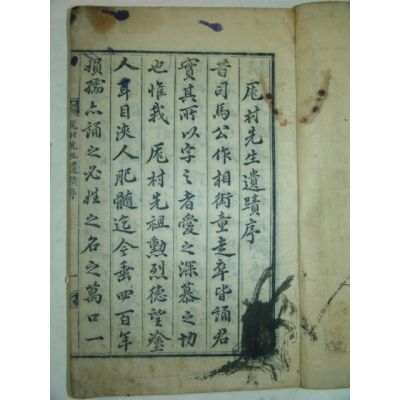 厖村先生遺蹟序
昔司馬公作相街童走卒皆誦君
實其所以字之者愛之深慕之切
也惟我 厖村先祖勲烈德望塗
人耳目浹人肌髓迄今垂四百年
婦孺亦誦之必姓之名之萬口一
厖村先生遺蹟序